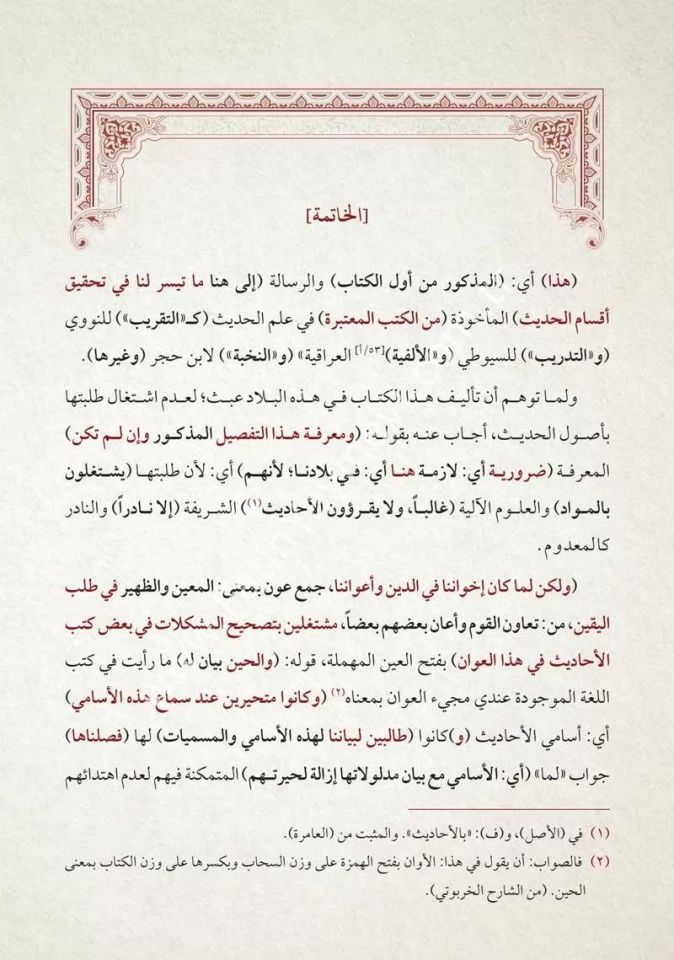 [الخاتمة]
(هذا) أي: (المذكور من أول الكتاب) والرسالة (إلى هنا ما تيسر لنا في تحقيق
أقسام الحديث) المأخوذة (من الكتب المعتبرة) في علم الحديث (كـ«التقريب») للنووي
(و«التدريب») للسيوطي (و«الألفية)[٥٣/أ] العراقية» (و«النخبة») لابن حجر (وغيرها).
ولمـا توهـم أن تأليـف هـذا الكتـاب فـي هـذه البـلاد عبـث؛ لعـدم اشتغال طلبتها
بأصـول الحديـث، أجـاب عنـه بقولـه: (ومعرفـة هـذا التفصيـل المذكـور وإن لـم تكن)
المعرفـة (ضروريـة أي: لازمـة هنـا أي: فـي بلادنـا؛ لأنهـم) أي: لأن طلبتهـا (يشتغلون
بالمواد) والعلوم الآلية (غالبـاً، ولا يقـرؤون الأحاديث(١)) الشريفة (إلا نـادراً) والنادر
كالمعدوم.
(ولكن لما كان إخواننا في الدين وأعواننا، جمع عون بمعنى: المعين والظهير في طلب
اليقين، من: تعاون القوم وأعان بعضهم بعضاً، مشتغلين بتصحيح المشكلات في بعض كتب
الأحاديث في هذا العوان) بفتح العين المهملة، قوله: (والحين بيان له) ما رأيت في كتب
اللغة الموجودة عندي مجيء العوان بمعناه(٢) (وكانوا متحيرين عند سماع هذه الأسامي)
أي: أسامي الأحاديث (و)كانوا (طالبين لبياننا لهذه الأسامي والمسميات) لها (فصلناها)
جواب «لما» (أي: الأسامي مع بيان مدلولاتها إزالة لحيرتـهم) المتمكنة فيهم لعدم اهتدائهم
(١) في (الأصل)، و(ف): «بالأحاديث». والمثبت من (العامرة).
(٢) فالصواب: أن يقول في هذا: الأوان بفتح الهمزة على وزن السحاب وبكسرها على وزن الكتاب بمعنى
الحين. (من الشارح الخربوتي).